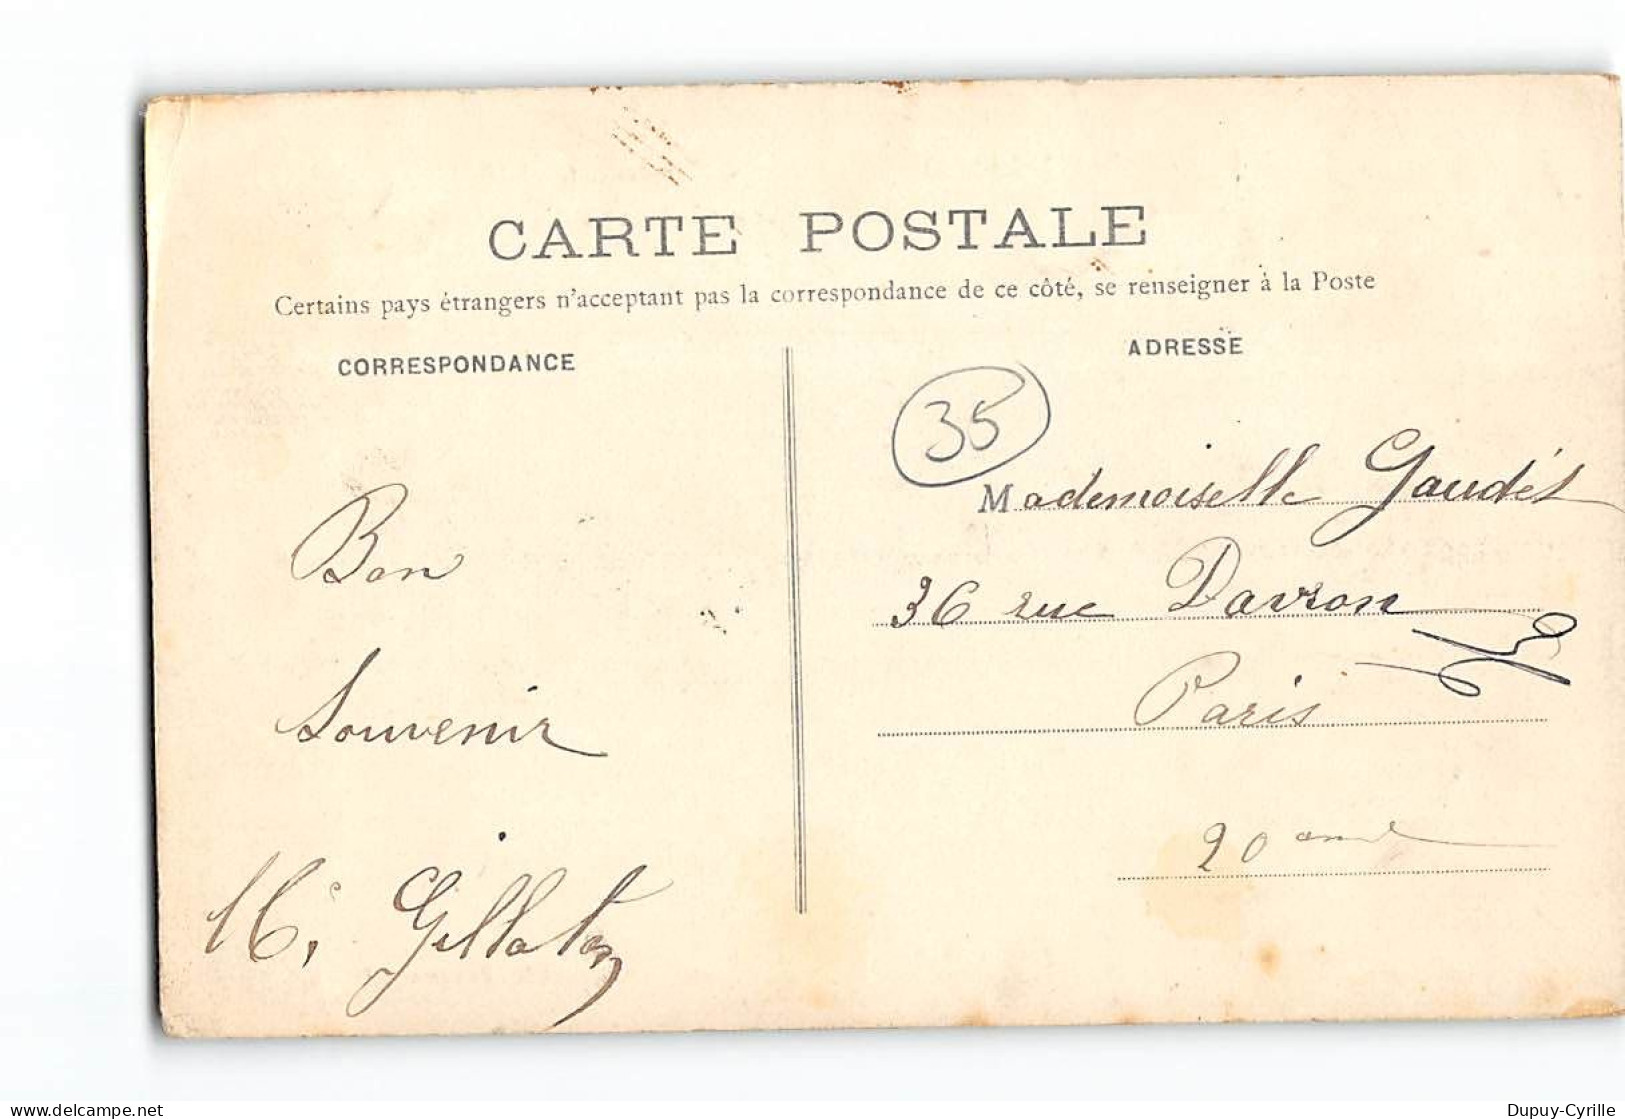 CARTE POSTALE
Certains pays étrangers n'acceptant pas la correspondance de ce côté, se renseigner à la Poste
CORRESPONDANCE
ADRESSE
35
Mademoiselle Gaudét
36 rue Davron
Paris
20
Bon
Souvenir
Dupuy-Cyrille